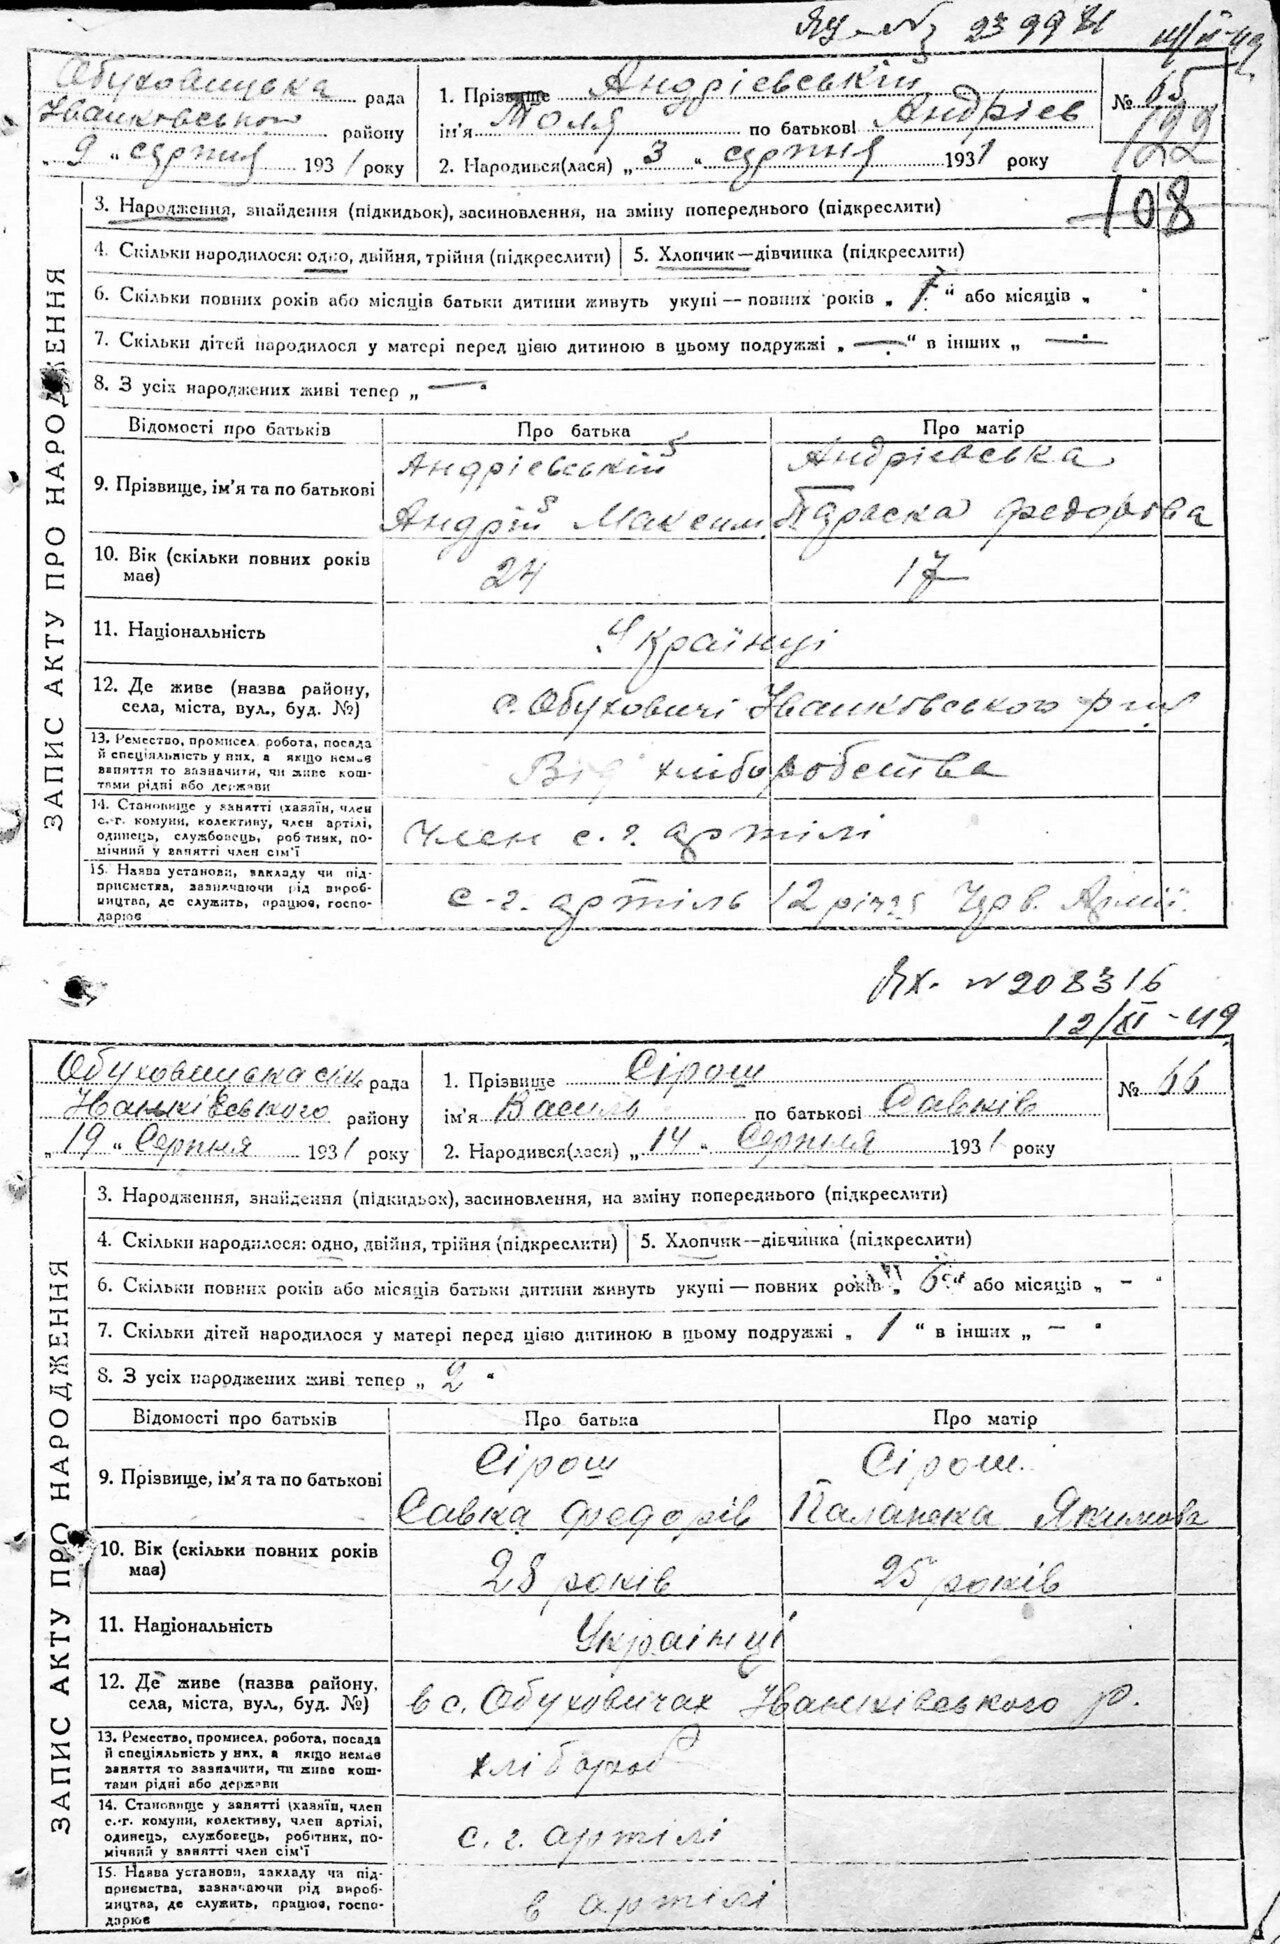 № 239981
Обуховицька рада
Іванковського району
„9“ серпня 1931 року
1. Прізвище Андрієвський
ім'я Толя по батькові Андрієв
2. Народився(лася) „3“ серпня 1931 року
№ 65
122
108
ЗАПИС АКТУ ПРО НАРОДЖЕННЯ
3. Народження, знайдення (підкидьок), засиновлення, на зміну попереднього (підкреслити)
4. Скільки народилося: одно, двійня, трійня (підкреслити) 5. Хлопчик—дівчинка (підкреслити)
6. Скільки повних років або місяців батьки дитини живуть укупі — повних років „1“ або місяців „ “
7. Скільки дітей народилося у матері перед цією дитиною в цьому подружжі „—“ в інших „—“
8. З усіх народжених живі тепер „—“
Відомості про батьків Про батька Про матір
9. Прізвище, ім'я та по батькові
Андрієвський Андрієвська
Андрій Максим. Параска Федорова
10. Вік (скільки повних років має) 24 17
11. Національність Українці
12. Де живе (назва району, села, міста, вул., буд. №) с. Обуховичі Іванковського р-ну
13. Ремество, промисел, робота, посада й спеціяльність у них, а якщо немає заняття то зазначити, чи живе коштами рідні або держави
Від хліборобства
14. Становище у занятті (хазяїн, член с.-г. комуни, колективу, член артілі, одинець, службовець, робітник, помічний у занятті член сім'ї
Член с. г. артілі
15. Назва установи, закладу чи підприємства, зазначаючи рід виробництва, де служить, працює, господарює
с-г. артіль 12 річчя Чрв. Армії.
Ях. № 208316
12/XI-49
Обуховицька сіль рада
Іванківського району
„19“ Серпня 1931 року
1. Прізвище Сірош
ім'я Василь по батькові Савків
2. Народився(лася) „14“ Серпня 1931 року
№ 66
ЗАПИС АКТУ ПРО НАРОДЖЕННЯ
3. Народження, знайдення (підкидьок), засиновлення, на зміну попереднього (підкреслити)
4. Скільки народилося: одно, двійня, трійня (підкреслити) 5. Хлопчик—дівчинка (підкреслити)
6. Скільки повних років або місяців батьки дитини живуть укупі — повних років „6“ або місяців „–“
7. Скільки дітей народилося у матері перед цією дитиною в цьому подружжі „1“ в інших „–“
8. З усіх народжених живі тепер „2“
Відомості про батьків Про батька Про матір
9. Прізвище, ім'я та по батькові
Сірош Сірош
Савка Федорів Палажка Якимова
10. Вік (скільки повних років має) 28 років 25 років
11. Національність Українці
12. Де живе (назва району, села, міста, вул., буд. №) в с. Обуховичах Іванківського р.
13. Ремество, промисел, робота, посада й спеціяльність у них, а якщо немає заняття то зазначити, чи живе коштами рідні або держави
хлібороб
14. Становище у занятті (хазяїн, член с.-г. комуни, колективу, член артілі, одинець, службовець, робітник, помічний у занятті член сім'ї
с. г. артілі
15. Назва установи, закладу чи підприємства, зазначаючи рід виробництва, де служить, працює, господарює
в артілі